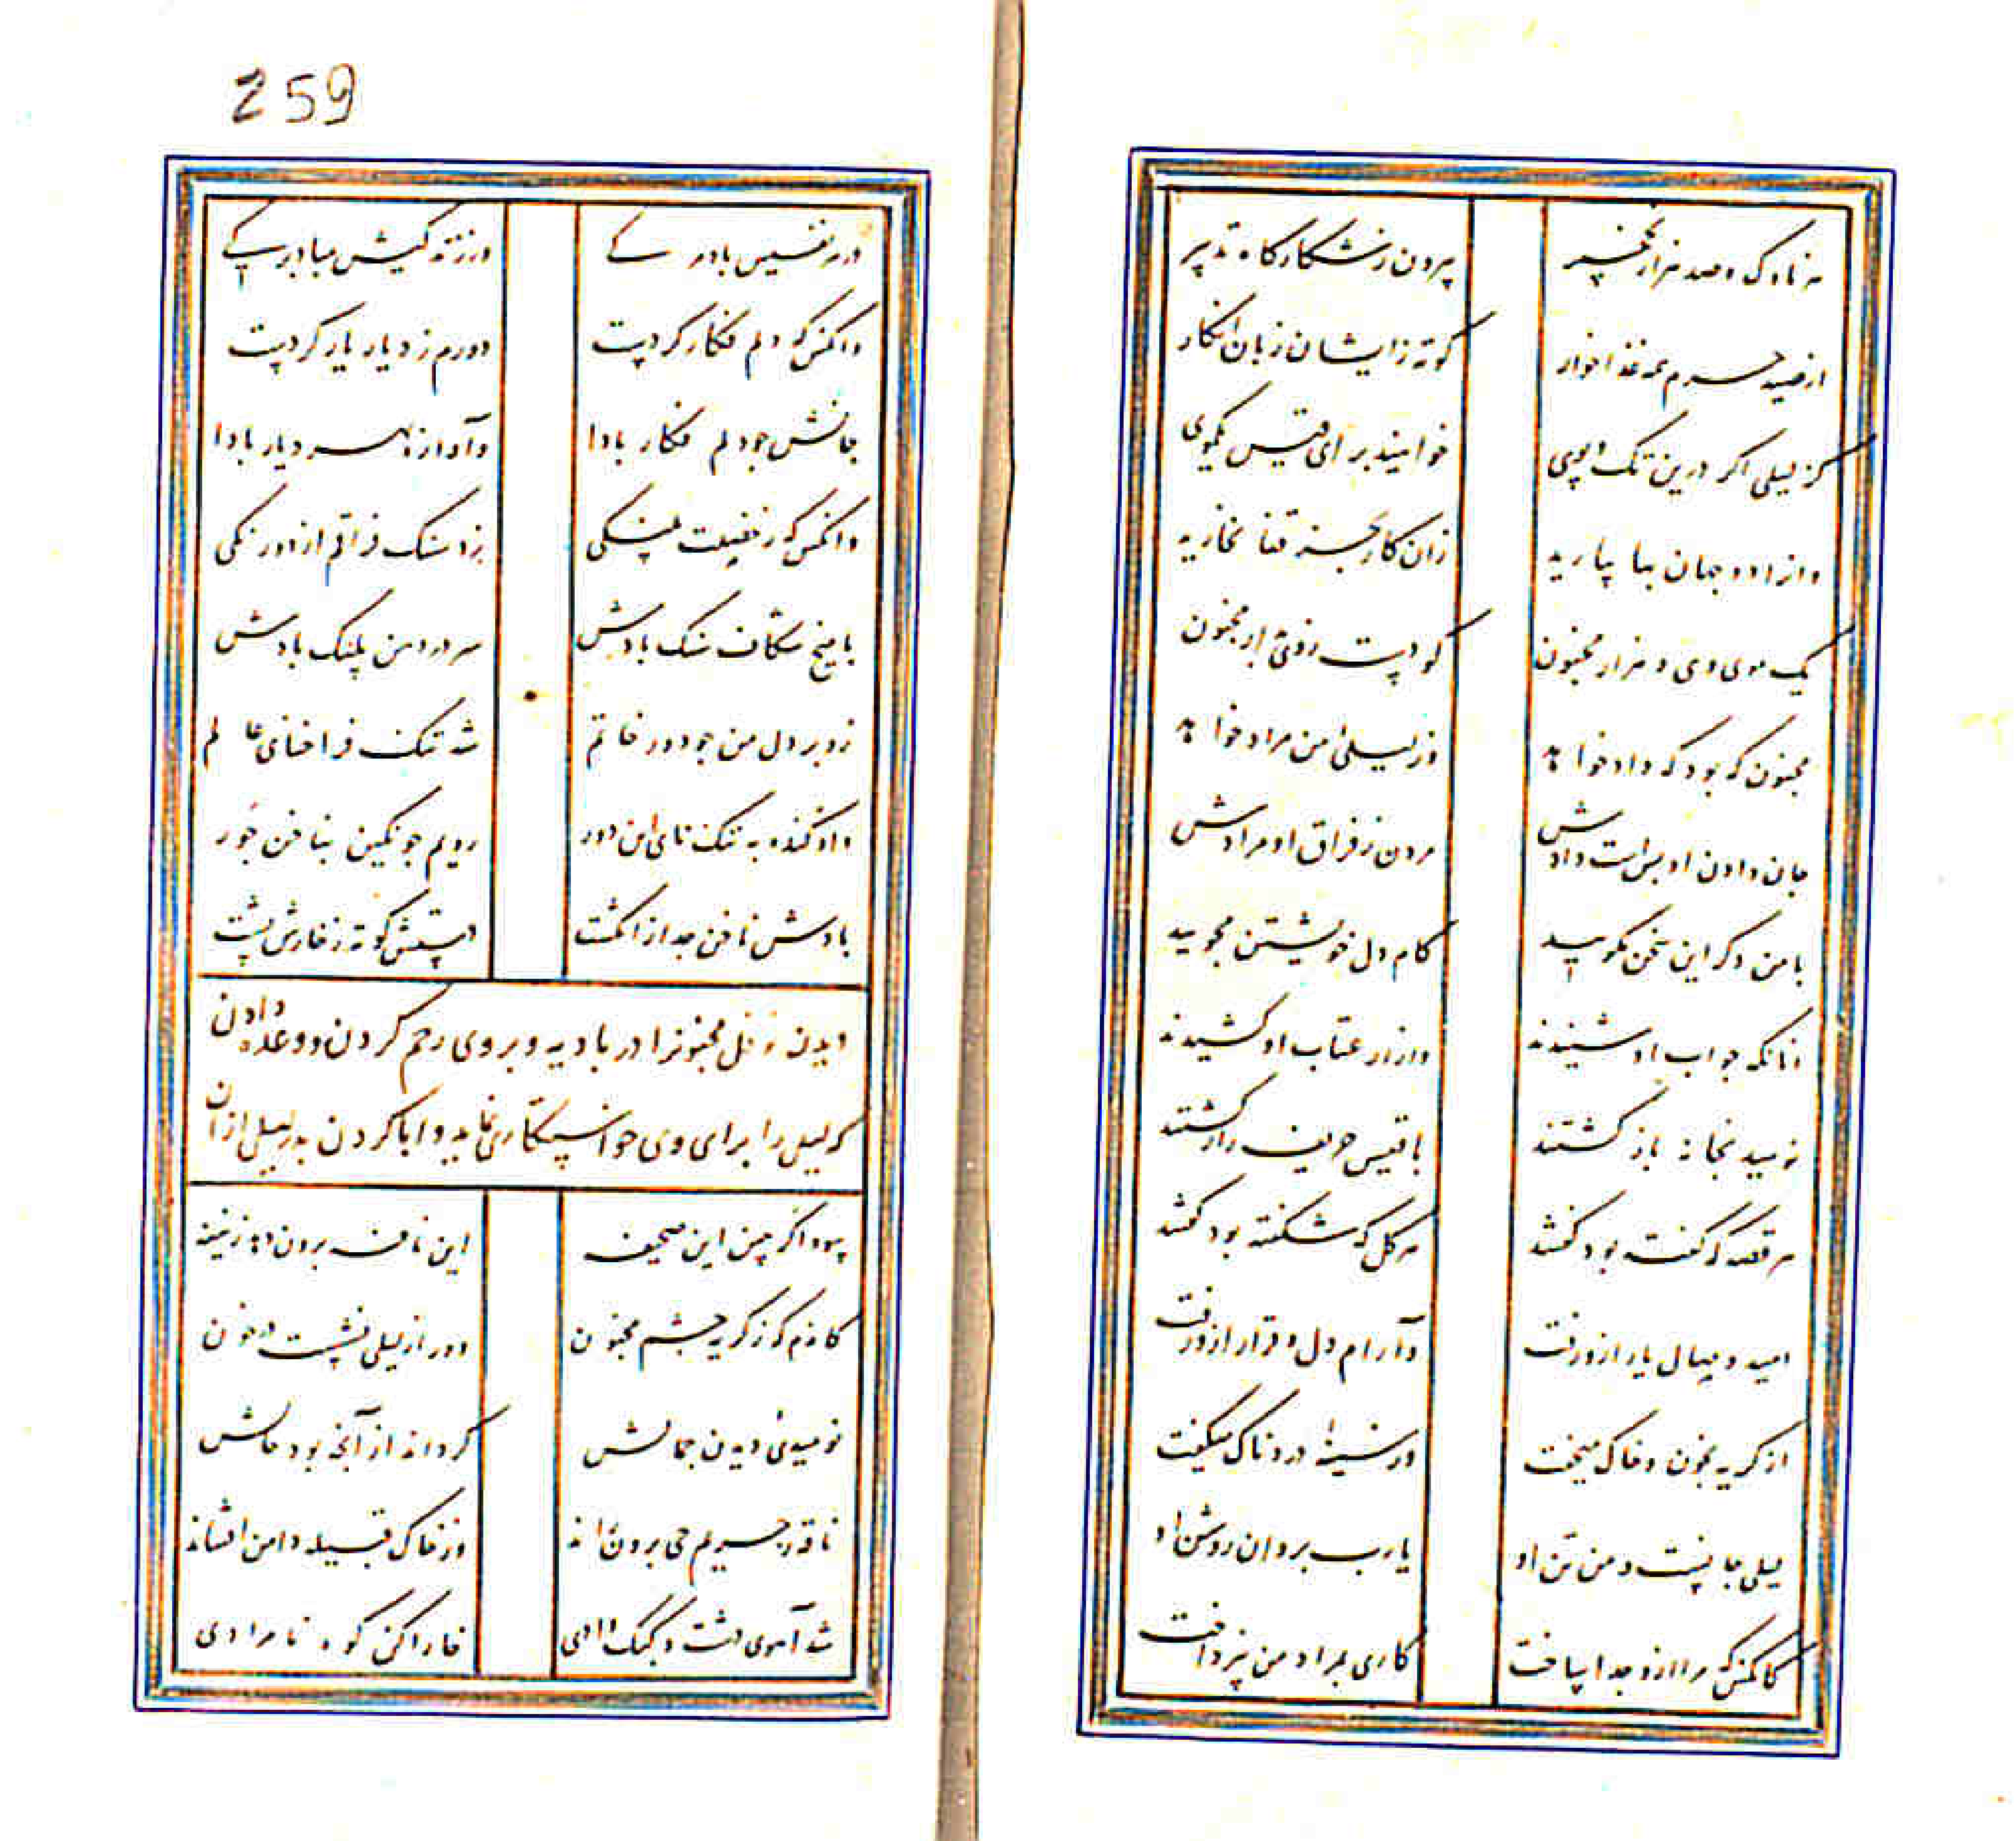 259
هر ناوک و صد هزار نخچیر
بیرون ز شکارگاه تدبیر
از صید حرم همه غذا خوار
کوته ز ایشان زبان انکار
کز لیلی اگر درین تک و پوی
خواهید برای قیس یکموی
واز او دو جهان بها بیارید
زان کار بجز قفا نخارید
یک موی وی و هزار مجنون
کو دست زوی بدار مجنون
مجنون که بود که داد خواهد
وز لیلی من مراد خواهد
جان دادن او بس است دادش
مردن ز فراق او مرادش
با من دگر این سخن مگویید
کام دل خویشتن مجویید
آنانکه جواب او شنیدند
وازار عتاب او کشیدند
نومید بخانه باز گشتند
با قیس حریف راز گشتند
هر قصه که گفته بود گفتند
هر گل که شکفته بود
امید وصال یار ازو رفت
وآرام دل و قرار ازو رفت
از گریه بخون و خاک میخفت
وز سینه دردناک میگفت
لیلی جانست و من تن او
یارب بروان روشن او
کانکس که مرا ازو جدا ساخت
کاری بمراد من نپرداخت
در هر نفسیش باد مرگی
وز زندگیش مباد برگی
وانکس که دلم فکار کردست
دورم ز دیار یار کردست
جانش چو دلم فکار بادا
وآواره ز هر دیار بادا
وانکس که ز خصلت پلنگی
زد سنگ فراقم از دو رنگی
با میخ شکاف سنگ بادش
سر در دهن پلنگ بادش
زد بر دل من چو دور خاتم
شد تنگ فراخنای عالم
وافکنده به تنگنای این دور
رویم چو نگین بناخن جور
بادش ناخن جدا ز انگشت
دستش کوته ز خارش پشت
دیدن نوفل مجنونرا در بادیه و بر وی رحم کردن و وعده دادن
که لیلی را برای وی خواستکاری نماید و ابا کردن پدر لیلی از آن
سوداگر چین این صحیفه
این نافه برون دهد ز نیفه
کاندم که ز گریه چشم مجنون
دور از لیلی نشست در خون
نومیدی دیدن جمالش
گرداند از آنچه بود حالش
ناقه ز حریم حی برون راند
وز خاک قبیله دامن افشاند
شد آهوی دشت و کبک وادی
خارا کن کوه نامرادی